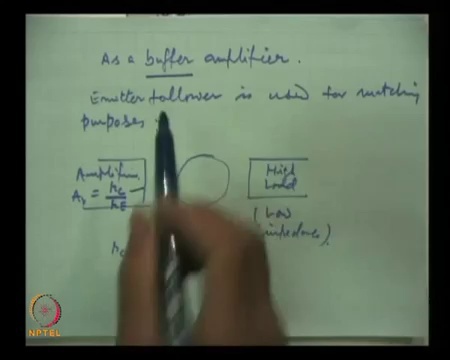 As a buffer amplifier.
Emitter follower is used for matching
purposes.
Amplifier
High
Load
(Low
impedance).
NPTEL